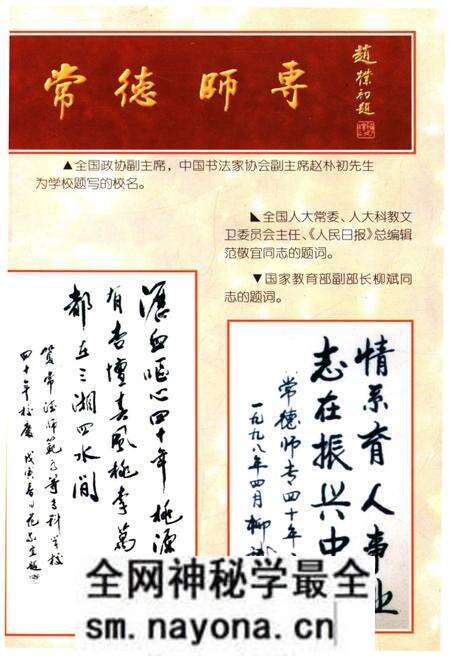 常德師專
趙樸初題
▲全国政协副主席，中国书法家协会副主席赵朴初先生
为学校题写的校名。
◣全国人大常委、人大科教文
卫委员会主任、《人民日报》总编辑
范敬宜同志的题词。
▼国家教育部副部长柳斌同
志的题词。
瀝血嘔心四十年 桃源
有杏壇春風桃李萬
都在三湘四水间
賀常德師範高等專科學校
四十年校慶 戊寅春日范敬宜題
情系育人事业
志在振兴中
常德师专四十年
一九九八年四月 柳
全网神秘学最全
sm.nayona.cn